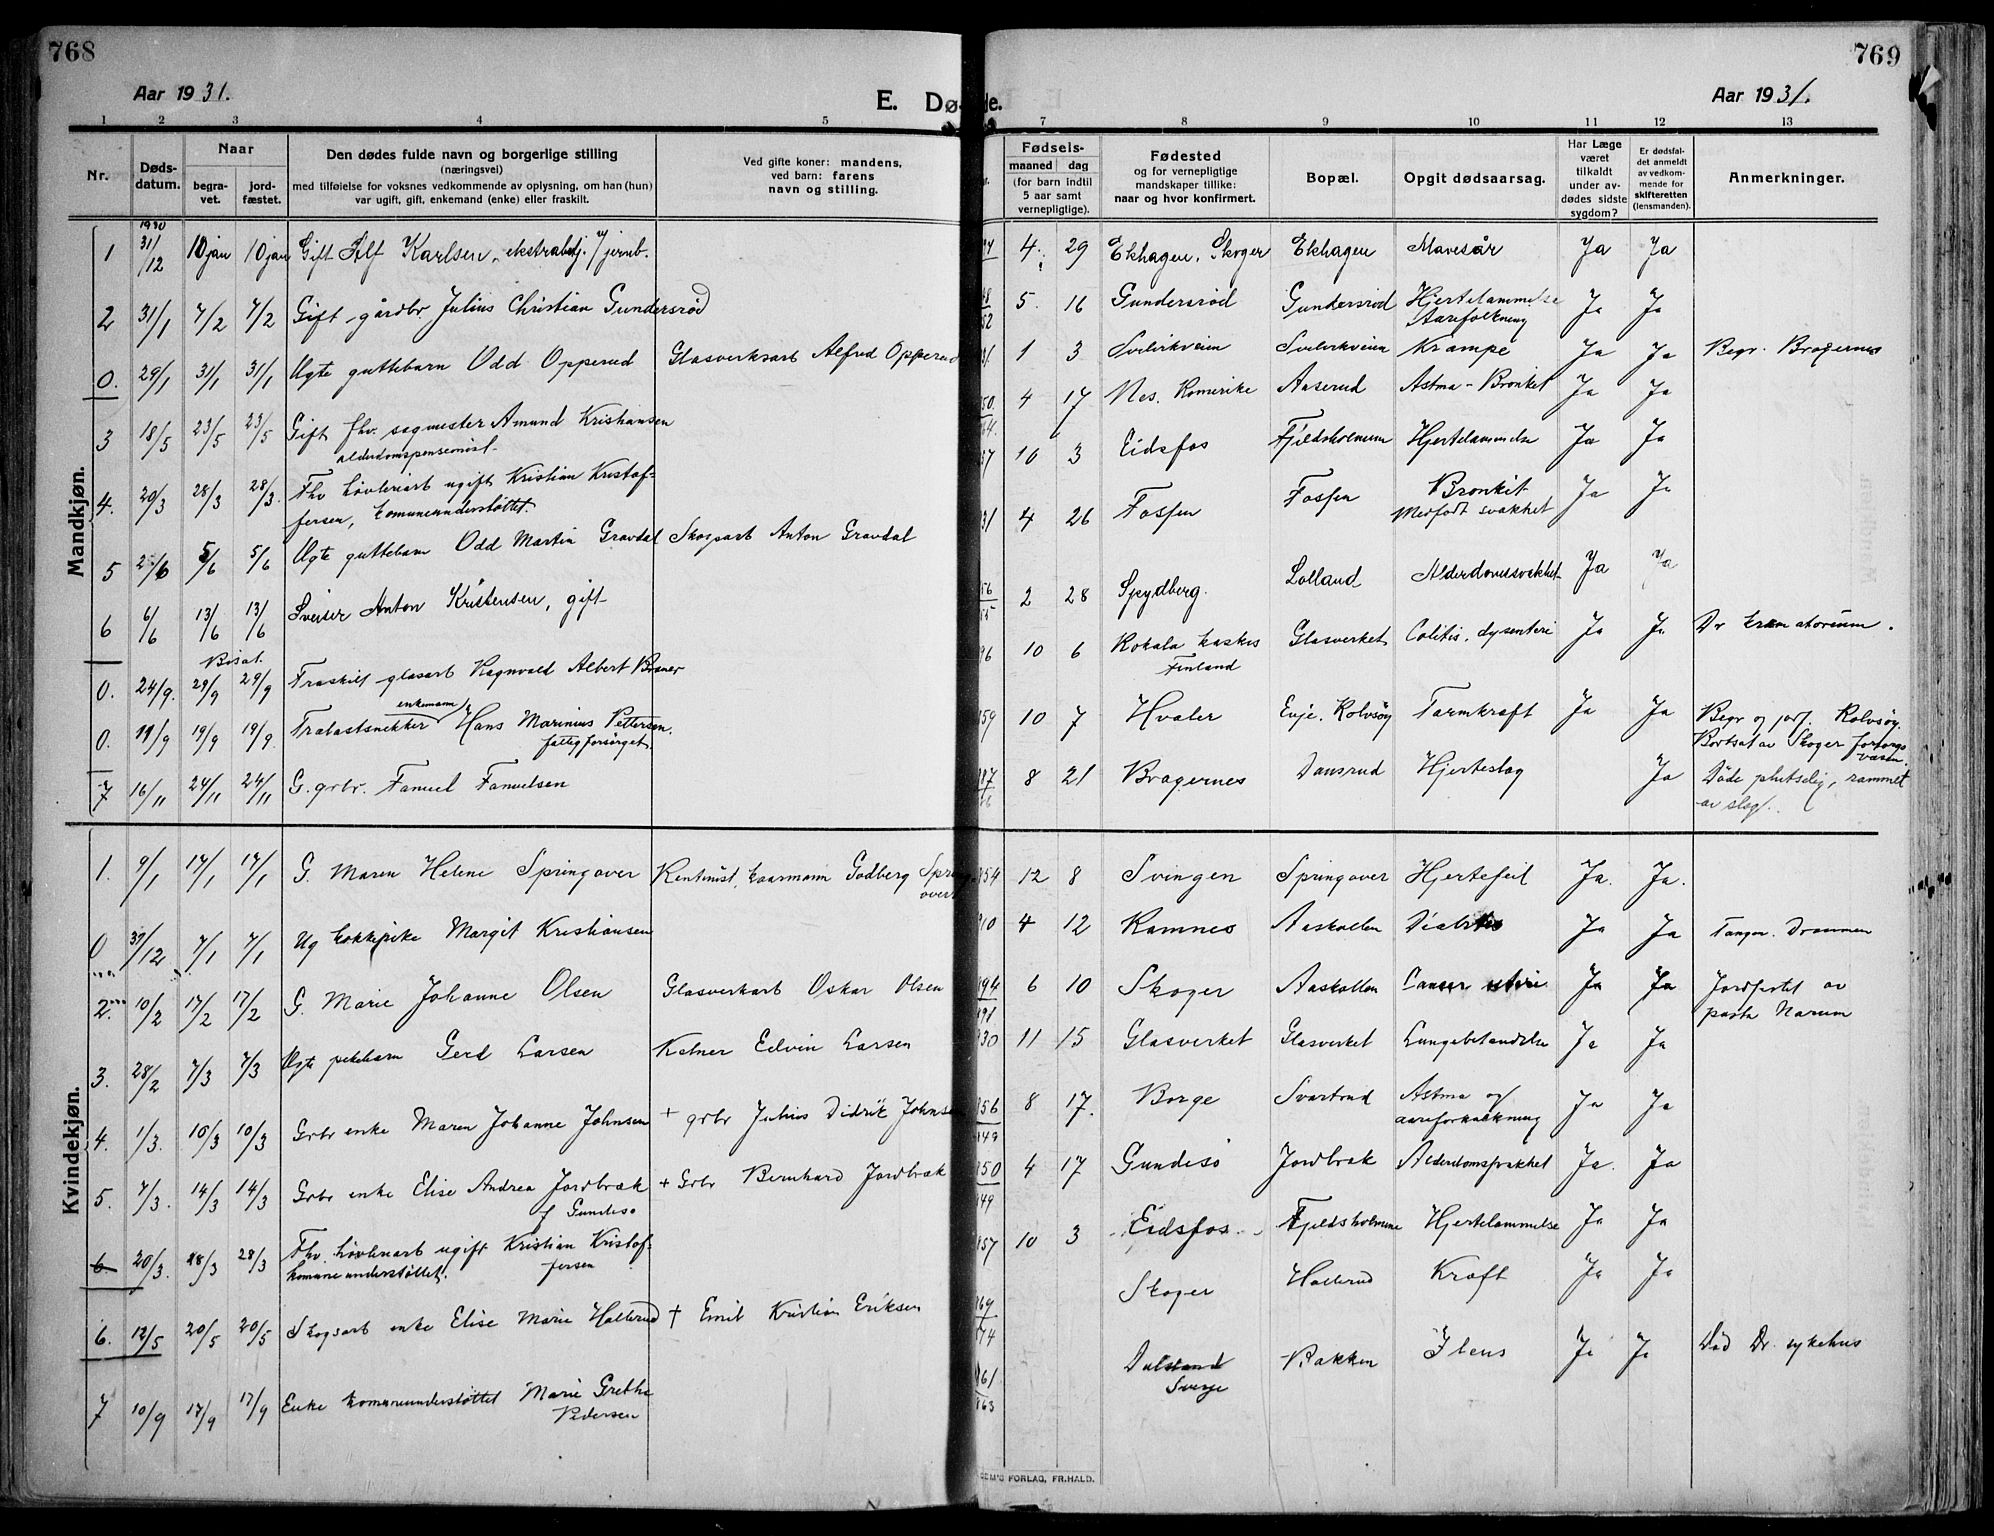 768
Aar 1931.
E. Dø
1 2 3 4 5
Nr.
Døds-
datum.
Naar
begra-
vet.
jord-
fæstet.
Den dødes fulde navn og borgerlige stilling
(næringsvei)
med tilføielse for voksnes vedkommende av oplysning, om han (hun)
var ugift, gift, enkemand (enke) eller fraskilt.
Ved gifte koner: mandens,
ved barn: farens
navn og stilling.
Mandkjøn.
1930
1 31/12 10 jan 10 jan Gift Alf Karlsen, ekstraarbj. v/ jernb.
2 31/1 7/2 7/2 Gift gårdbr. Julius Christian Gundersrød
0. 29/1 31/1 31/1 Ugte guttebarn Odd Opperud Glasverksarb Alfred Opperud
3 18/5 23/5 23/5 Gift fhv. sagmester Amund Kristiansen
alderdomspensionist.
4. 20/3 28/3 28/3. Fhv høvleriarb ugift Kristian Kristof-
fersen, komuneunderstøttet.
5 2/6 5/6 5/6 Ugte guttebarn Odd Martin Gravdal Skogsarb Anton Gravdal
6 6/6 13/6 13/6 Sveiser Anton Kristensen, gift
Bisat.
0. 24/9. 29/9 29/9 Fraskilt glasarb Ragnvald Albert
enkemann
0. 11/9 19/9 19/9. Hans Marinius Pettersen.
fattigforsørget.
7 16/11 24/11 24/11 G. grbr. Fanuel Fanuelsen
Kvindekjøn.
1. 9/1 17/1 17/1 G. Maren Helene Springover Rentenist, Godberg Spring
over
0 31/12 7/1 7/1 Ug kokkepike Margit Kristiansen
2. 10/2 17/2 17/2 G. Marie Johanne Olsen Glasverkarb Oskar Olsen
3. 28/2 7/3 7/3 Ugte pikebarn Gerd Larsen Kelner Edvin Larsen
4. 1/3. 10/3 10/3 Grbr enke Maren Johanne Johnsen + grbr Julius Didrik Johnsen
5. 7/3. 14/3 14/3 Grbr enke Elise Andrea Jordbræk + Grbr Bernhard Jordbræk
f Gundesø
6. 20/3. 28/3 28/3 Fhv. høvleriarb ugift Kristian Kristof-
komuneunderstøttet. fersen
6. 12/5 20/5 20/5 Skogsarb enke Elise Marie Hallerud + Emil Kristian Eriksen
7 10/9 17/9 17/9 Enke komuneunderstøttet Marie Grethe
Pedersen
769
de. Aar 1931.
7 8 9 10 11 12 13
Fødsels-
maaned dag
(for barn indtil
5 aar samt
vernepligtige).
Fødested
og for vernepligtige
mandskaper tillike:
naar og hvor konfirmert.
Bopæl.
Opgit dødsaarsag.
Har Læge
været
tilkaldt
under av-
dødes sidste
sygdom?
Er dødsfal-
det anmeldt
av vedkom-
mende for
skifteretten
(lensmanden).
Anmerkninger.
4. 29 Ekhagen, Skoger Ekhagen Mavesår Ja Ja
5. 16 Gundersrød Gundersrød Hjertelammelse Ja Ja
1 3 Svelvikveien Svelvikveien Krampe Ja Ja Begr. Bragernes
4 17 Nes, Romerike Aaserud Astma - Bronkit Ja Ja
10 3 Eidsfos Fjeldsholmene Hjertelammelse Ja Ja
4 26 Fossen Fossen Bronkit Ja Ja
Medfødt svakhet
2 28 Spydberg. Lolland Alderdomssvakhet Ja Ja
10 6 Glasverket Colitis, dysenteri Ja Ja Dr krematorium.
Finland
10 7 Hvaler Evje, Rolvsøy Tarmkræft Ja Ja Begr og jorf. Rolvsøy.
Bortsat av Skoger forsorgs
væsen.
8 21 Bragernes Dansrud Hjerteslag Ja Døde plutselig, rammet
av slag.
12 8 Svingen Springover Hjertefeil Ja. Ja.
4 12 Ramnes Aaskollen Diabetes Ja Ja Tangen. Drammen
6 10 Skoger Aaskollen Cancer uteri Ja Ja Jordfestet av
Narum
11 15 Glasverket Glasverket Lungebetændelse Ja Ja
8 17. Borge Svartrud Astma og Ja Ja
aareforkalkning
4 17 Gundesø Jordbræk Alderdomssvakhet Ja. Ja
10 3 Eidsfos Fjeldsholmene Hjertelammelse Ja Ja
Skoger Hallerud Kræft Ja Ja
Dalsland Bakken Ileus Ja Ja Død Dr. sykehus
Sverge
FORLAG, FR. HALD.